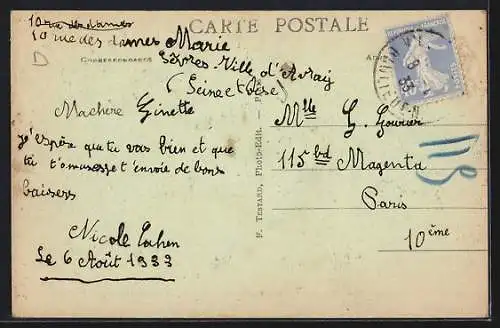 10 rue des dames
CARTE POSTALE
10 rue des dames Marie
CORRESPONDANCE
Sèvres-Ville d'Avray
(Seine et Oise)
Ma chère Ginette
j'espère que tu vas bien et que
tu t'amuse je t'envoie de bons
baisers
Nicole Cohen
Le 6 Août 1933
F. TESTARD, Photo-Edit.
Mlle G.
115 bd Magenta
Paris
10ème
115
D